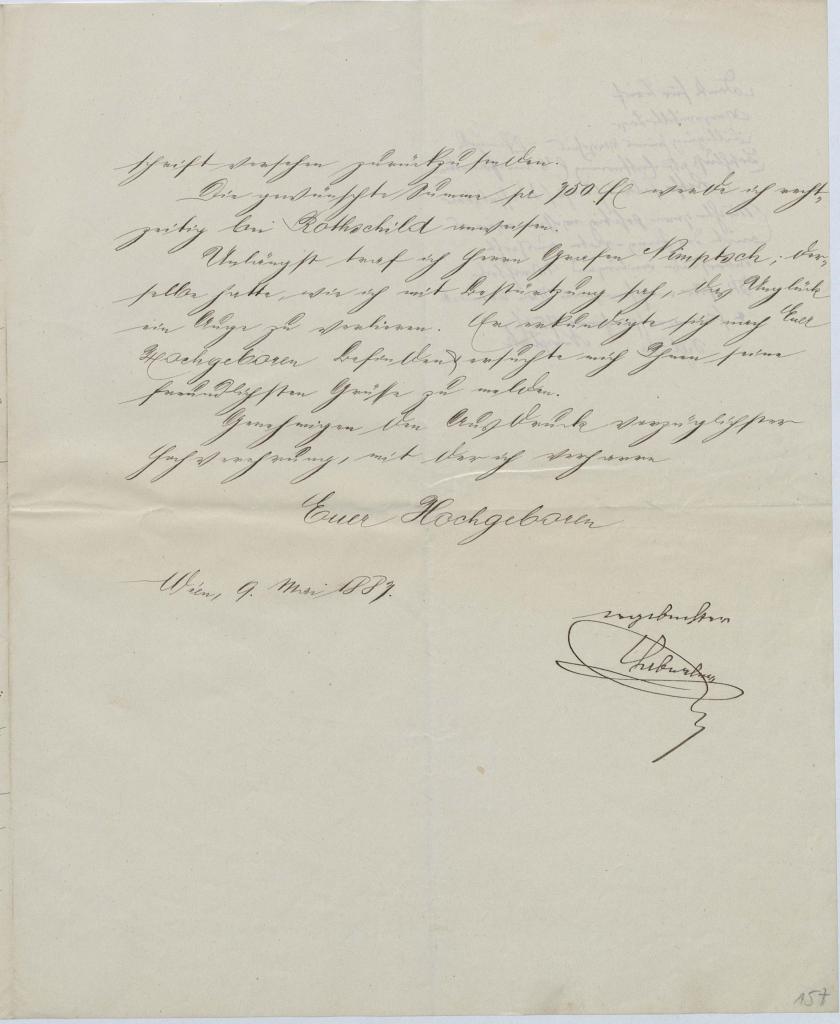 schrift versehen zurückzusenden.
Die gewünschte Summe per 750 fl werde ich recht-
zeitig bei Rothschild anweisen.
Unlängst traf ich Herrn Grafen Nimptsch; der-
selbe hatte, wie ich mit Bestürzung sah, das Unglück
ein Auge zu verlieren. Er erkundigte sich nach Euer
Hochgeboren Befinden & ersuchte mich Ihnen seine
freundlichsten Grüße zu melden.
Genehmigen den Ausdruck vorzüglichster
Hochverehrung, mit der ich verharre
Euer Hochgeboren
Wien, 9. Mai 1887.
ergebenster
157